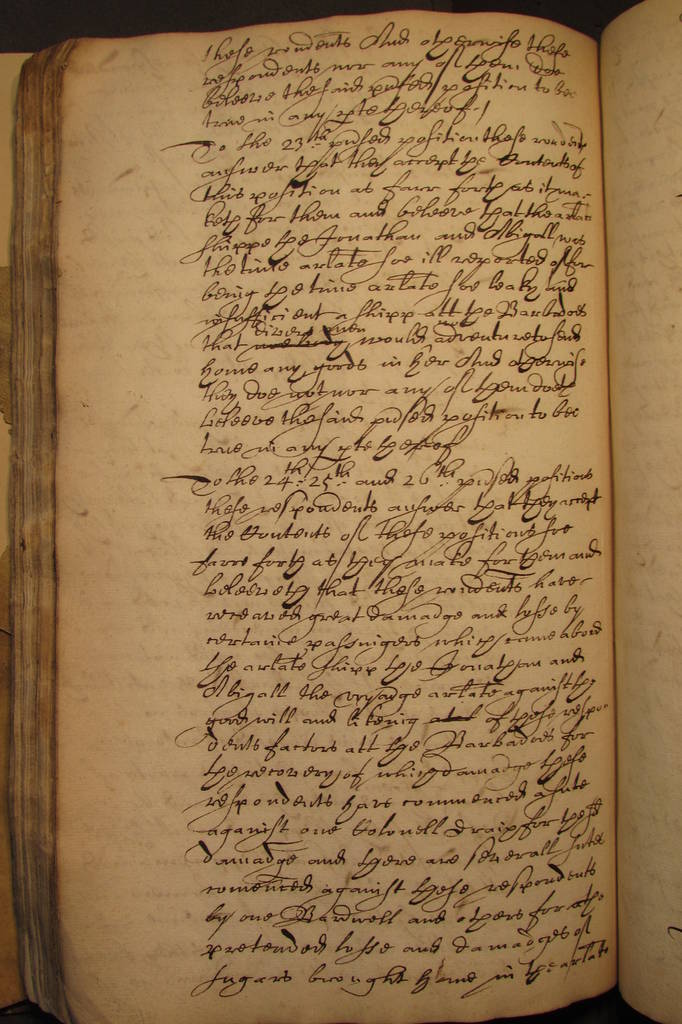 these rondents And otherwise these
respondents nor any of them doe
beleeve the said pnsed position to bee
true in any pte thereof /
To the 23th pnsed position these rondents
answer that they accept the Contents of
this position as farr forth as it ma-
keth for them and beleeve that the arlate
shippe the Jonathan and Abigall was
the time arlate soe ill reported of for
being the time arlate soe leaky and
insufficient a shipp att the Barbados
that divers men would adventure to send
home any goods in her And otherwise
they doe not nor any of them doth
beleeve the said pnsed position to bee
true in any pte thereof
To the 24th: 25th: and 26th: pnsed positions
these respondents answer that they accept
the Contents of these positions soe
farre forth as they make for them and
beleeveth that these rondents have
receaved great damadge and losse by
certaine passengers which came abord
the arlate shipp the Jonathan and
Abigall the voyadge arlate against the
good will and likeing of these respo-
dents factors att the Barbadoes for
the recovery of which damadge these
respondents have commenced a sute
against one Colonell Draix for these
damadge and there are severall sutes
comenced against these respondents
by one Bardwell and others for the
pretended losse and damadges of
sugars brought home in the arlate